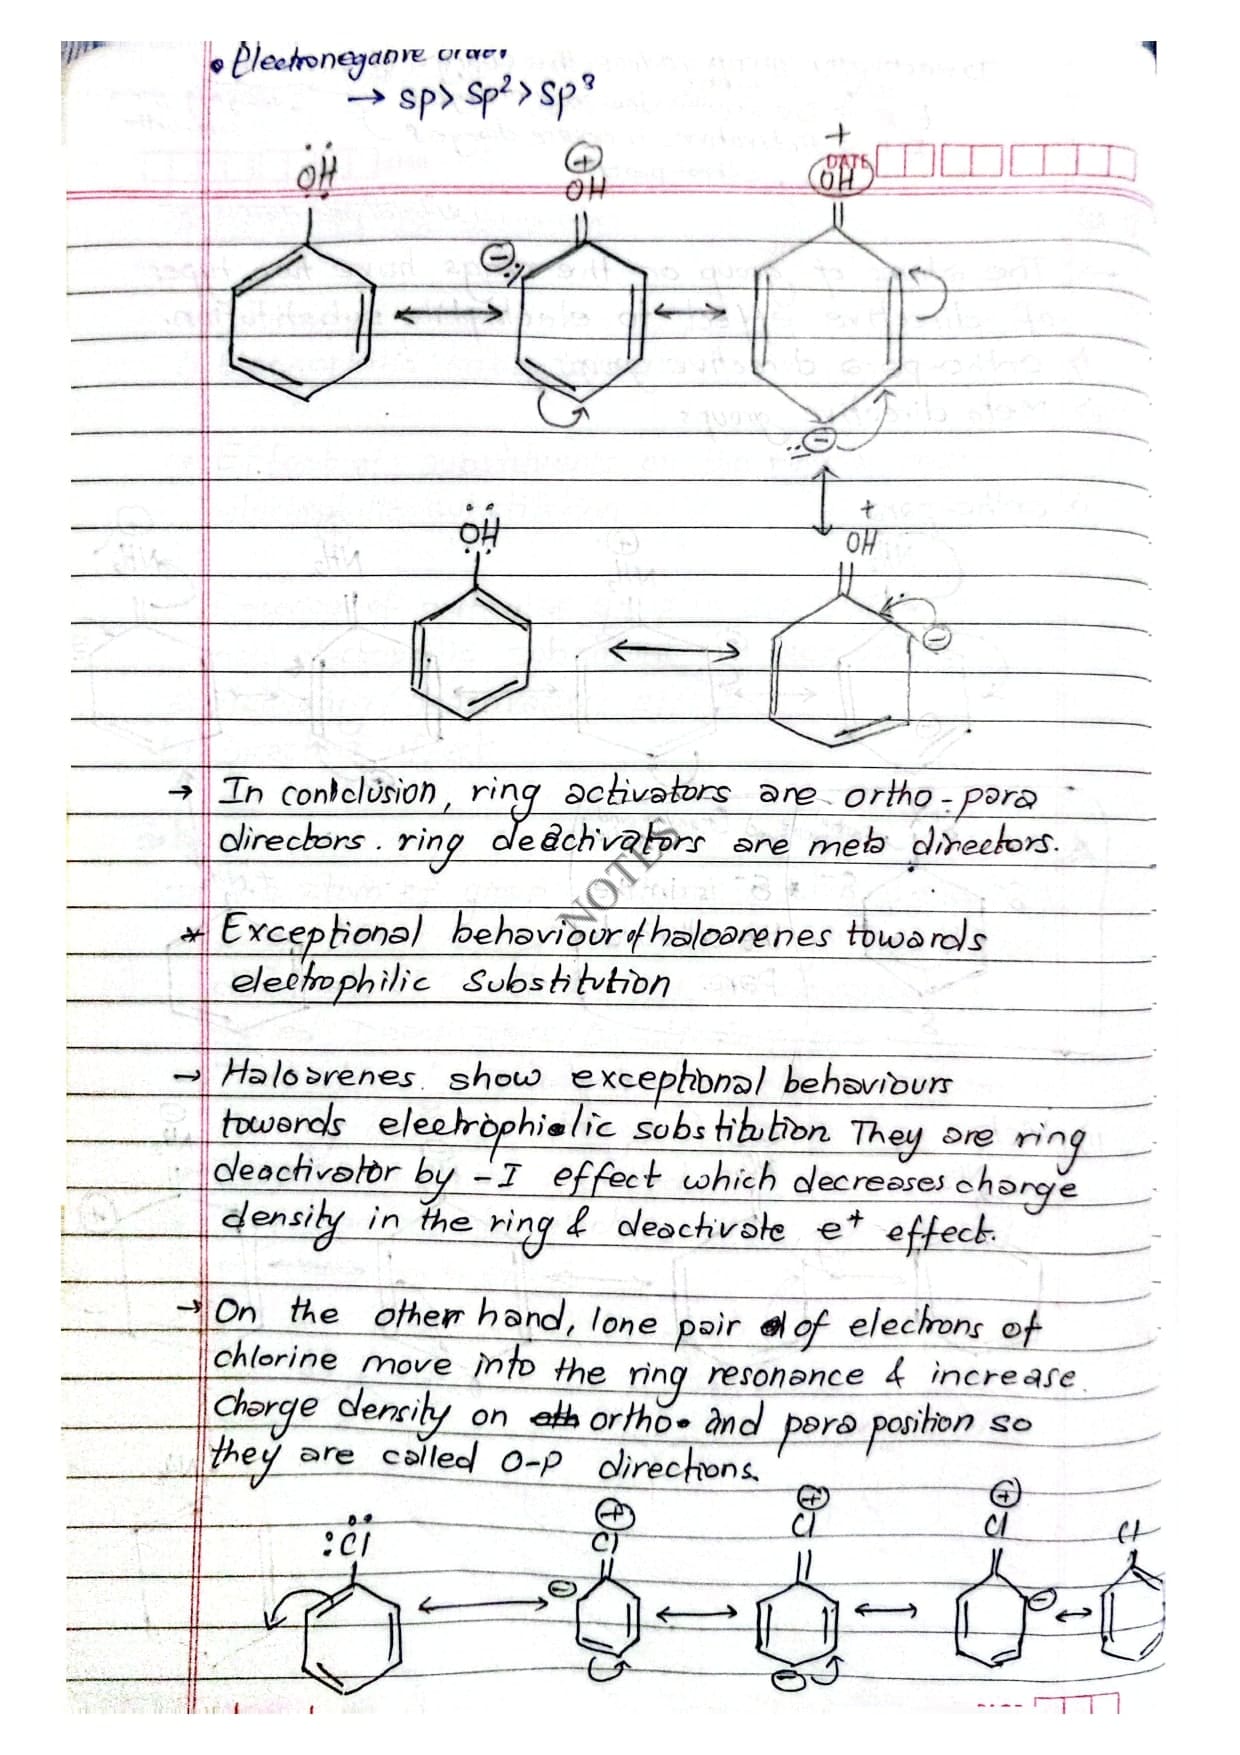 • Electronegative order
→ sp > sp² > sp³
DATE
ÖH
⊕
OH
+
OH
⊖
⊖
ÖH
+
OH
⊖
→ In conclusion, ring activators are ortho-para
directors. ring deactivators are meta directors.
NOTES
* Exceptional behaviour of haloarenes towards
electrophilic substitution
→ Haloarenes show exceptional behaviours
towards electrophiolic substitution They are ring
deactivator by -I effect which decreases charge
density in the ring & deactivate e⁺ effect.
→ On the other hand, lone pair of electrons of
chlorine move into the ring resonance & increase
charge density on ortho- and para position so
they are called O-P directions.
:Cl
⊕
Cl
⊕
Cl
⊕
Cl
Cl
⊖
⊖
⊖